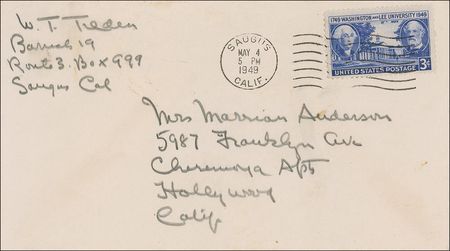 W. T. Tilden
Barrack 19
Route 3. Box 999
Saugus Cal
SAUGUS
MAY 4
5 PM
1949
CALIF.
1749 WASHINGTON AND LEE UNIVERSITY 1949
UNITED STATES POSTAGE
3¢
Mrs Marrian Anderson
5987 Franklyn Ave
Cheremoya Apts
Hollywood
Calif.